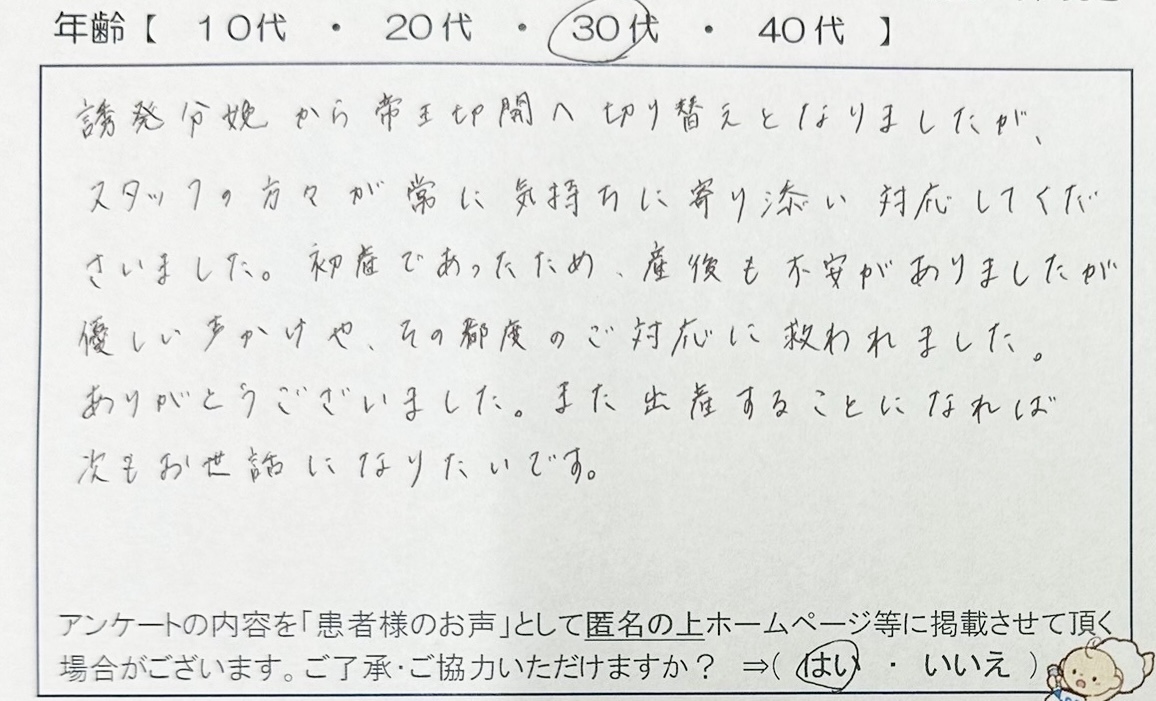 年齢【 10代 ・ 20代 ・ 30代 ・ 40代 】
誘発分娩から帝王切開へ切り替えとなりましたが、
スタッフの方々が常に気持ちに寄り添い対応してくだ
さいました。初産であったため、産後も不安がありましたが
優しい声かけや、その都度のご対応に救われました。
ありがとうございました。また出産することになれば
次もお世話になりたいです。
アンケートの内容を「患者様のお声」として匿名の上ホームページ等に掲載させて頂く
場合がございます。ご了承・ご協力いただけますか? ⇒( はい ・ いいえ )